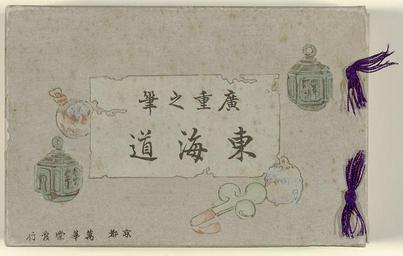 廣重之筆
東海道
京都 萬華堂發行